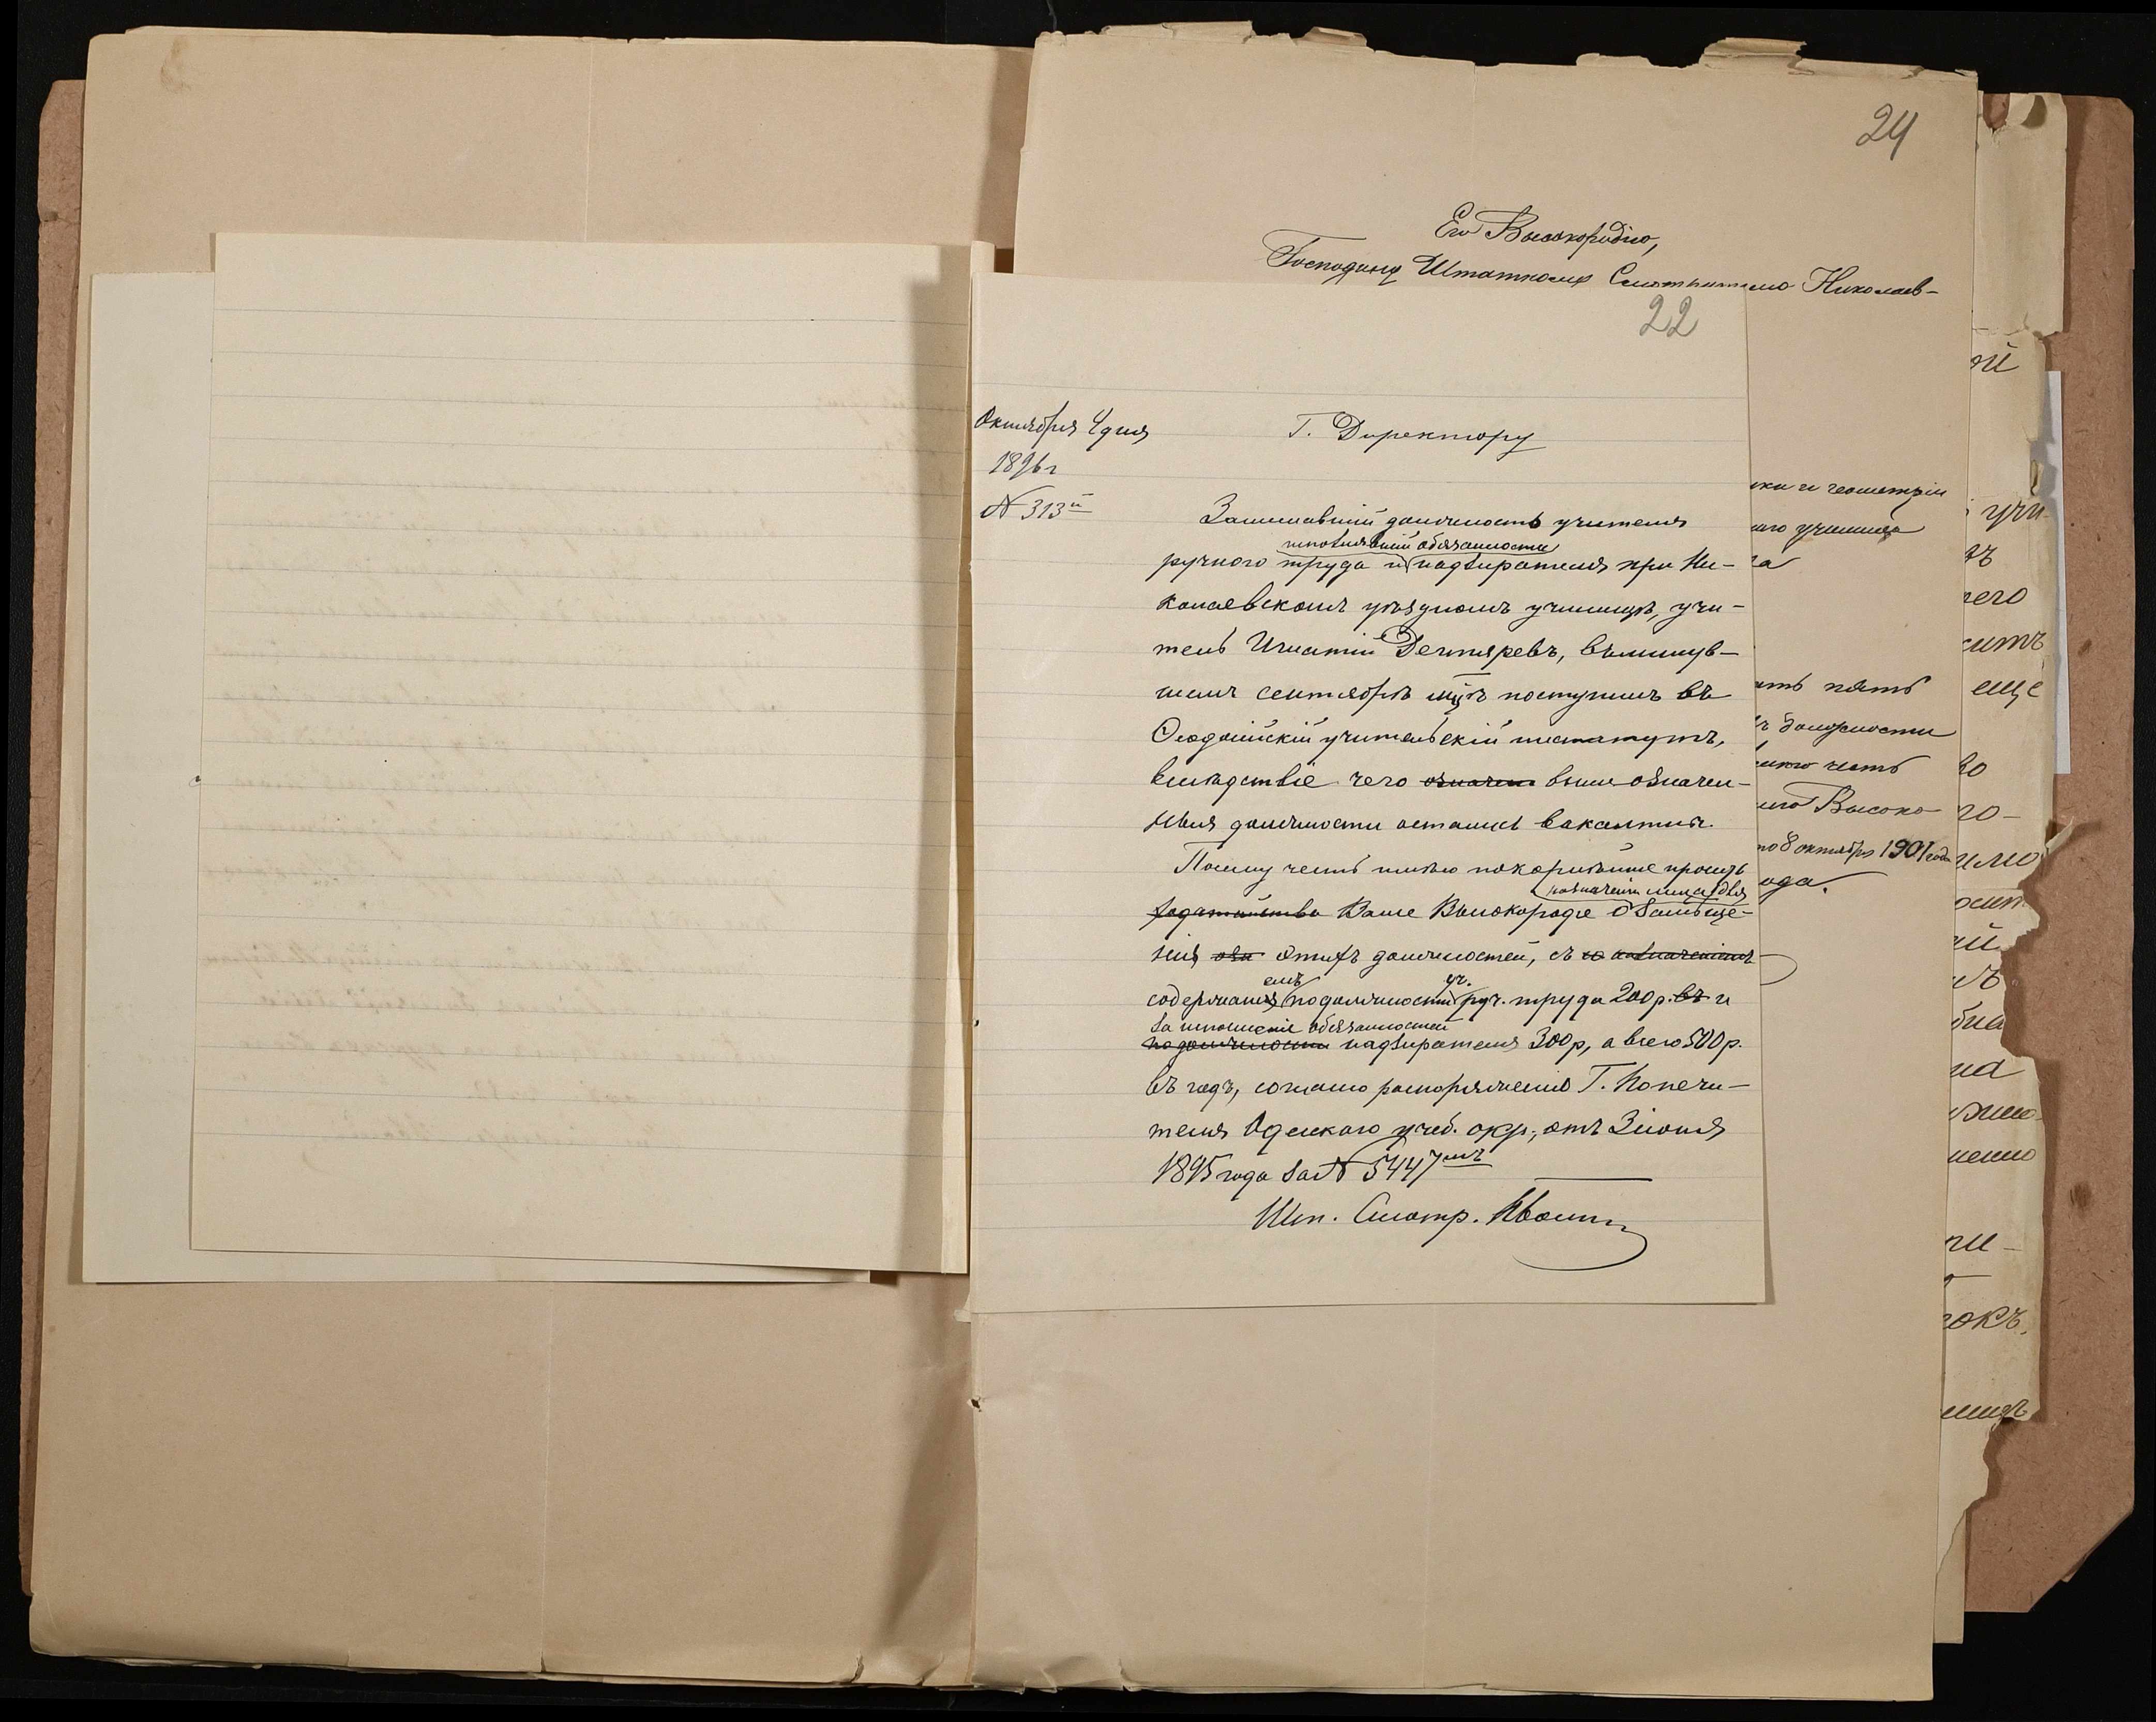 24
Его Высокородію,
Господину Штатному Смотрителю Николаев-
22
Октября 4 дня
1896 г
№ 313й
Г. Директору
Занимавшій должность учителя
исполнявшій обязанности
ручного труда и надзирателя при Ни-
колаевскомъ уѣздномъ училищѣ, учи-
тель Игнатій Дегтяревъ, въ минув-
шемъ сентябрѣ мцѣ поступилъ въ
Ѳеодосійскій учительскій институтъ,
вслѣдствіе чего означен выше означен-
ныя должности остались вакантны.
Посему честь имѣю покорнѣйше просить
назначеніи лица для
ходатайства Ваше Высокородіе о замѣще-
нія озн этихъ должностей, съ назначеніемъ
емъ уч.
содержанія по должности руч. труда 200 р. въ и
за исполненіе обязанностей
по должности надзирателя 300 р, а всего 500 р.
въ годъ, согласно распоряженію Г. Попечи-
теля Одесскаго учеб. окр., отъ 3 іюня
1895 года за № 5447мъ
Шт. Смотр. Иванин
ики и геометріи
аго училища
та
ить пять
ъ должности
честь
Высоко-
по 8 октября 1901 года
ода.
ій
учи-
въ
чего
ситъ
еще
во
го-
имо
ій
на
нено
чи-
токъ.